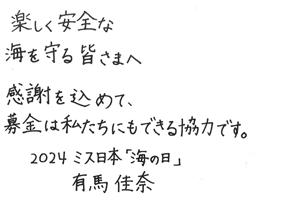 楽しく安全な
海を守る皆さまへ
感謝を込めて、
募金は私たちにもできる協力です。
2024 ミス日本「海の日」
有馬佳奈